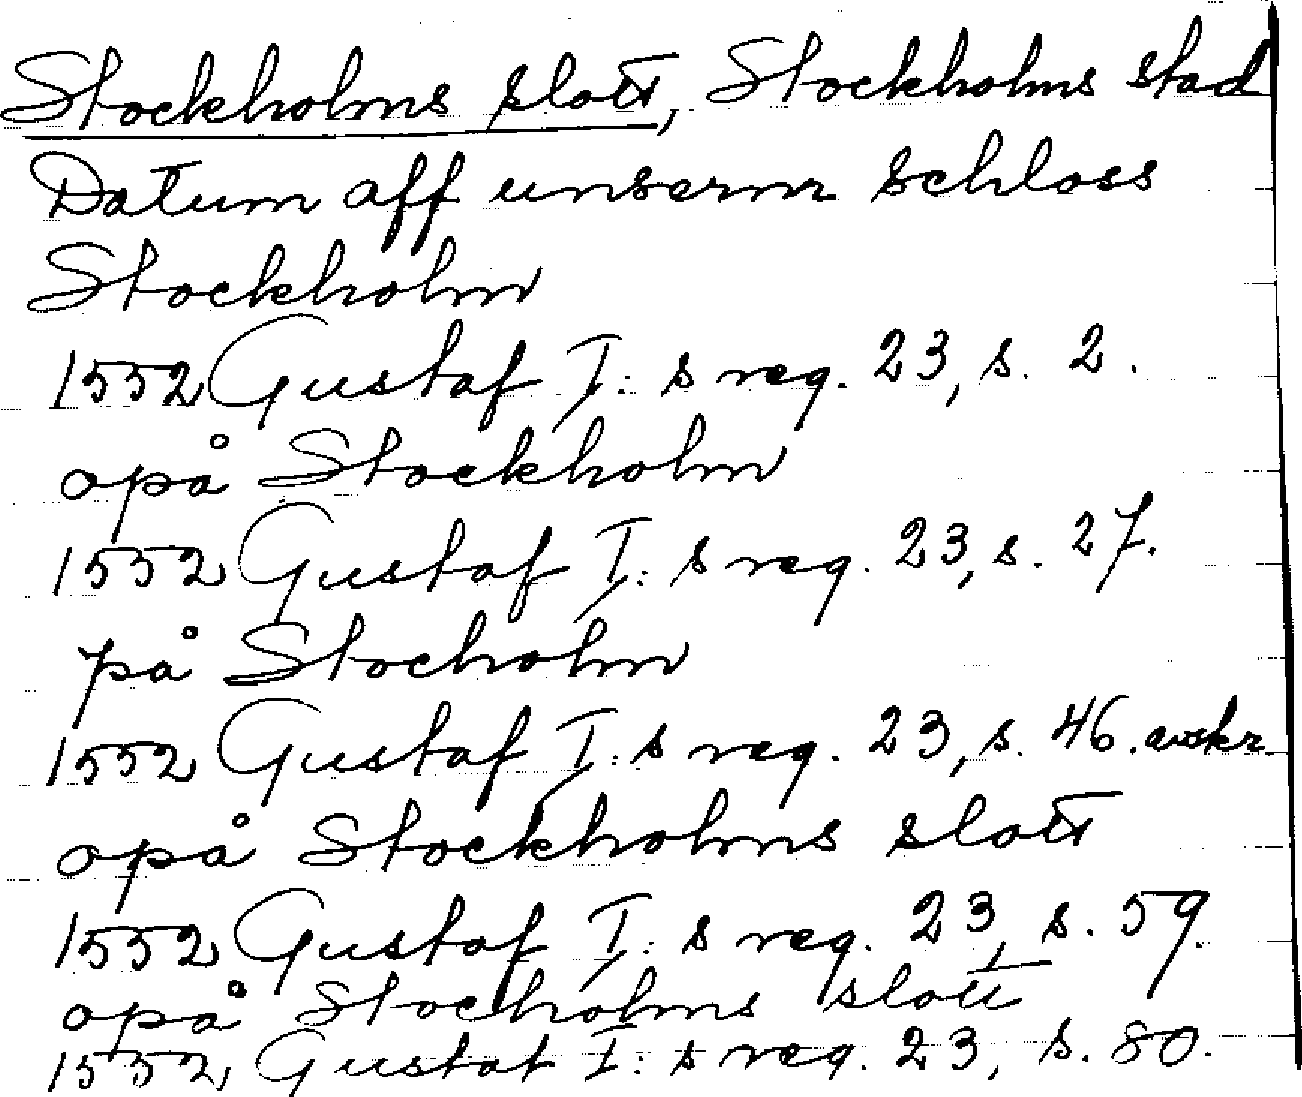 Stockholms slott, Stockholms stad
Datum aff unserm schloss
Stockholm
1552 Gustaf I:s reg. 23, s. 2.
opå Stockholm
1552 Gustaf I:s reg. 23, s. 27.
på Stocholm
1552 Gustaf I:s reg. 23, s. 46. avskr.
opå Stockholms slott
1552 Gustaf I:s reg. 23, s. 59.
opå Stocholms slott
1552, Gustaf I:s reg. 23, s. 80.